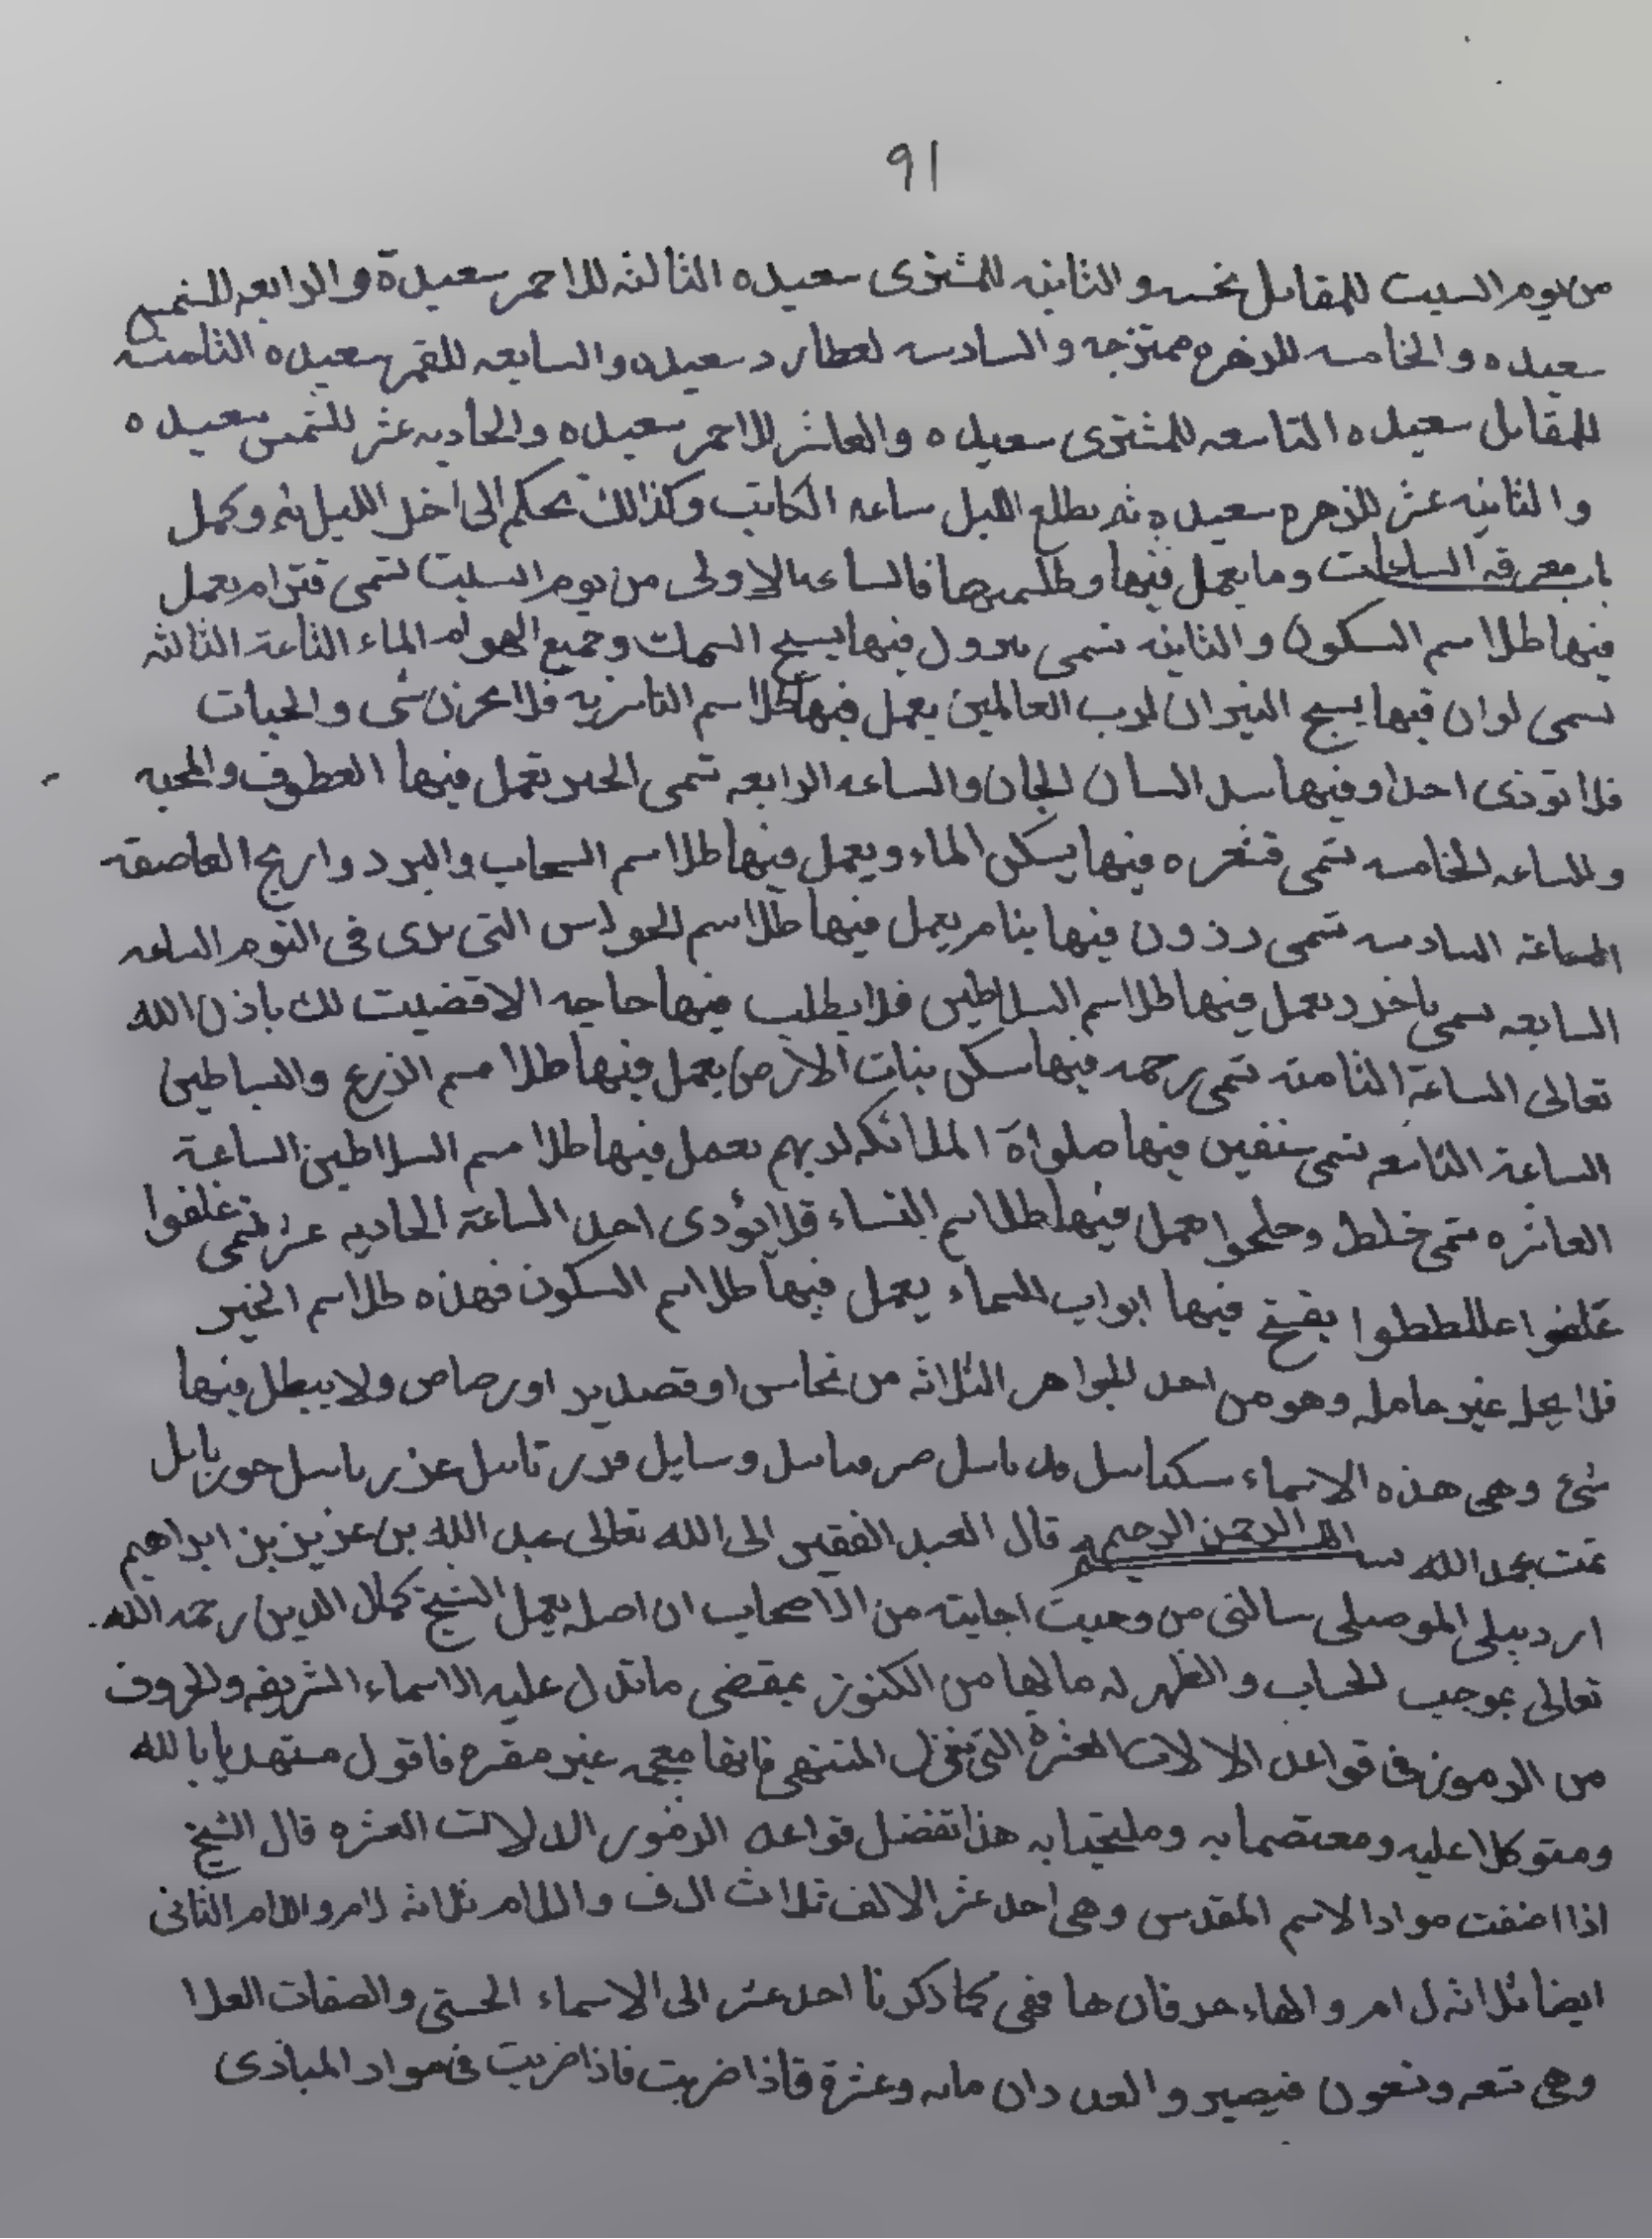 91
من يوم السبت للمقاتل نحسه والثانيه للمشترى سعيده الثالثه للاحمر سعيدة والرابعه للشمس
سعيده والخامسه للزهره ممتزجه والسادسه لعطارد سعيده والسابعه للقمر سعيده الثامنه
للمقاتل سعيده التاسعه للمشترى سعيده والعاشر للاحمر سعيده والحاديه عشر للشمس سعيده
والثانيه عشر للزهره سعيده ثم يطلع الليل ساعه الكاتب وكذالك تحكم الى اخر الليل تم وكمل
باب معرفه الساعات وما يعمل فيها وطلسمها فالساعه الاولى من يوم السبت تسمى يعمل
فيها طلاسم السكون والثانيه تسمى فيها يسبح السمك وجميع الهوام الماء الثاعة الثالثه
تسمى لوان فيها يسبح النيران لرب العالمين يعمل فيها طلاسم فلا شى والحيات
فلا توذى احدا وفيها لسان الجان والساعه الرابعه تسمى تعمل فيها العطوف والمحبه
والساعه الخامسه تسمى فيها يسكن الماء ويعمل فيها طلاسم السحاب والبرد واريح العاصفه
الساعة السادسه تسمى رزون فيها ينام يعمل فيها طلاسم الحواس التى ترى فى النوم الساعه
السابعه تسمى تعمل فيها طلاسم السلاطين فلا يطلب فيها حاجه الا قضيت لك باذن الله
تعالى الساعة الثامنه تسمى رحمه فيها سكن بنات الارض يعمل فيها طلاسم الزرع والبساطين
الساعة التاسعه تسمى فيها صلواة الملائكه لربهم تعمل فيها طلاسم السلاطين الساعة
العاشره تسمى خلط يعمل فيها طلاسم النساء فلا يؤدى احد الساعة الحاديه عشر تسمى علفوا
بفتح فيها ابواب السماء يعمل فيها طلاسم السكون فهذه طلاسم الخير
فلا غير حامله وهو من احد الجواهر الثلاثه من نحاس او قصدير اورصاص ولا يبطل فيها
شئ وهى هذه الاسماء
تمت بحمد الله بسم الله الرحمن الرحيم قال العبد الفقير الى الله تعالى عبد الله بن عزيز بن ابراهيم
اردبيلى الموصلى سالنى من وجبت اجابته من الاصحاب ان اصل بعمل الشيخ كمال الدين رحمه الله
تعالى بموجب الحساب والظهر له مالها من الكنوز بمقضى ماتدل عليه الاسماء الشريفه والحروف
من الرموز فى قواعد الالات العشرة التى المنتهى فانها معجمه غير فاقول مستهديا بالله
ومتوكلا عليه ومعتصما به وملتجيا به هذا تفضل قواعد الرموز الدلالات العشره قال الشيخ
اذا اضفت مواد الاسم المقدس وهى احد عشر الالف ثلاث الف واللام ثلاثه لام واللام الثانى
ايضا ثلاثه لام والهاء حرفان ها فهى كما ذكرنا احد عشر الى الاسماء الحسنى والصفات العلا
وهى تسعه وتسعون فيصير والعددان مائه وعشرة فاذا ضربت فاذا ضربت فى مواد المبادى